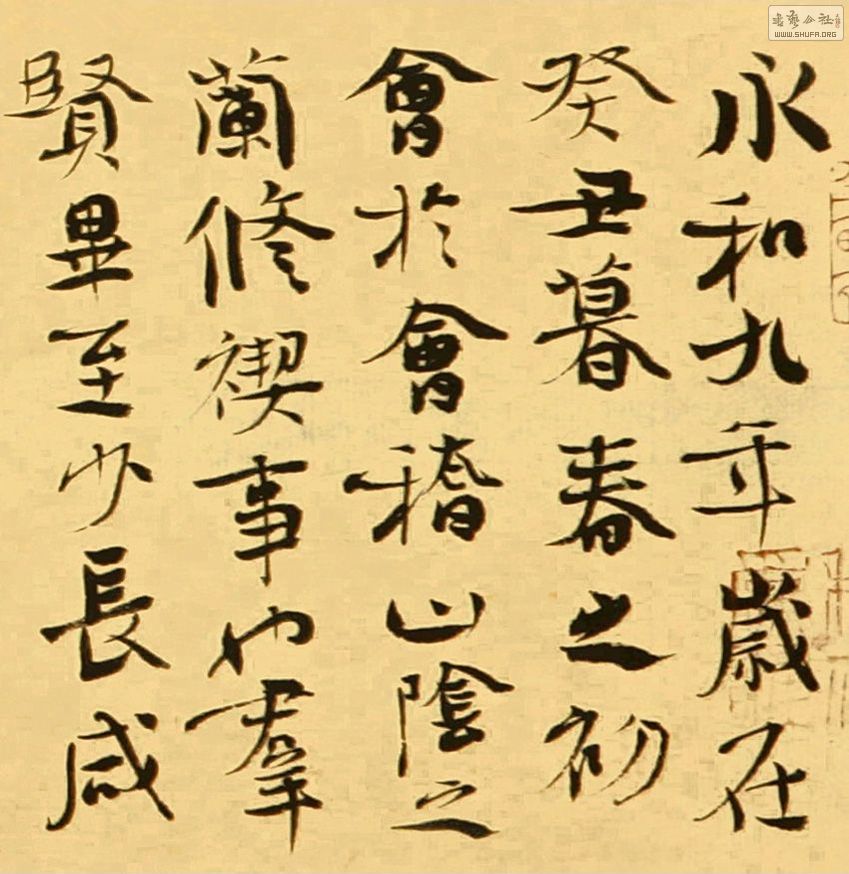 永和九年歲在
癸丑暮春之初
會於會稽山陰之
蘭修禊事也羣
賢畢至少長咸
WWW.SHUFA.ORG